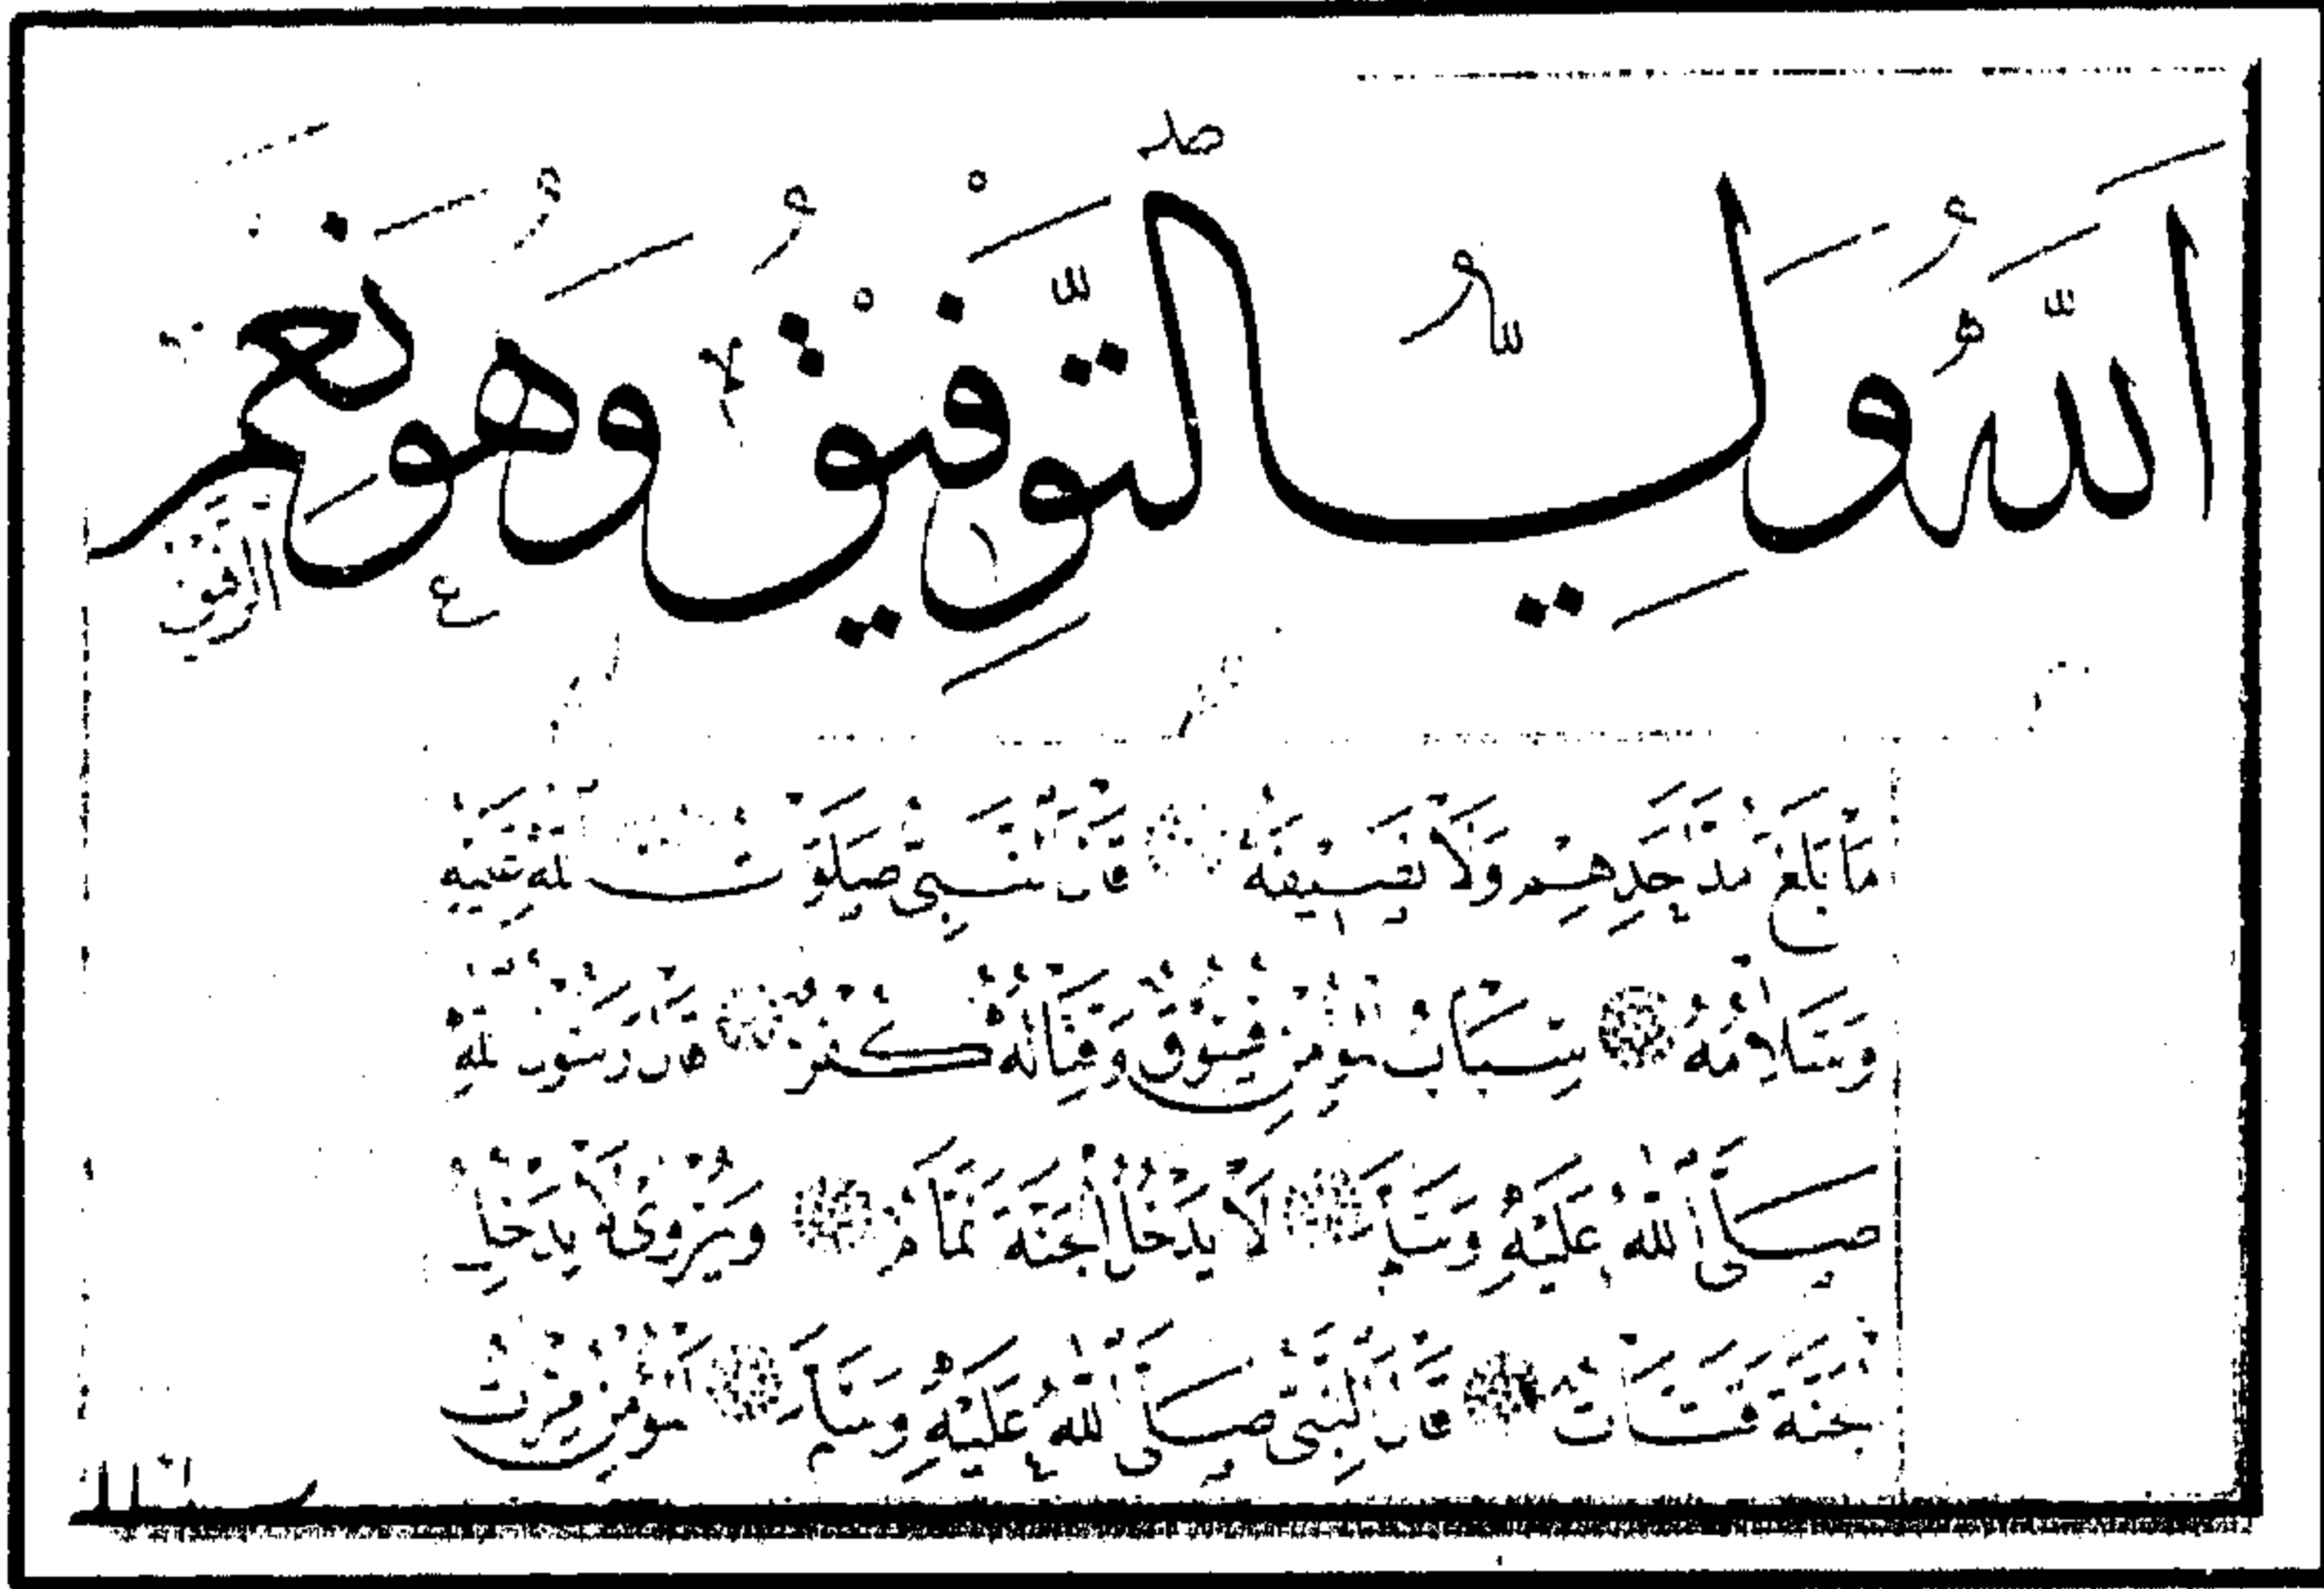 اَللّٰهُ وَلِيُّ التَّوْفِيقِ وَهُوَ نِعْمَ
الرَّفِيقُ
مَا بَلَغَ مُدَّ أَحَدِهِمْ وَلَا نَصِيفَهُ قَالَ النَّبِيُّ صَلَوَاتُ اللهِ عَلَيْهِ
وَسَلَامُهُ سِبَابُ الْمُؤْمِنِ فُسُوقٌ وَقِتَالُهُ كُفْرٌ قَالَ رَسُولُ اللهِ
صَلَّى اللهُ عَلَيْهِ وَسَلَّمَ لَا يَدْخُلُ الْجَنَّةَ نَمَّامٌ وَيُرْوَى لَا يَدْخُلُ
الْجَنَّةَ قَتَّاتٌ قَالَ النَّبِيُّ صَلَّى اللهُ عَلَيْهِ وَسَلَّمَ الْمُؤْمِنُ مِرْآتُ